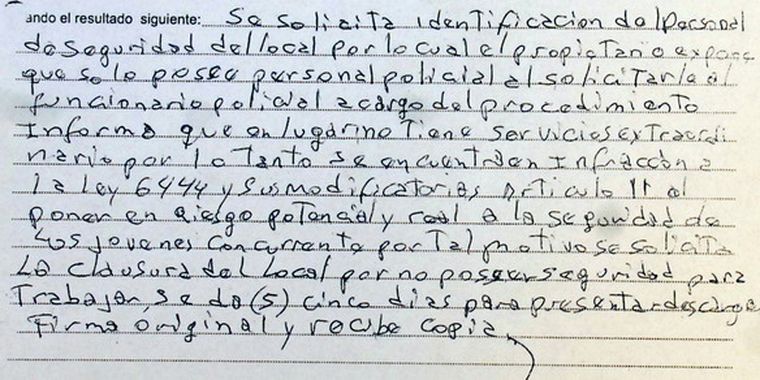 ando el resultado siguiente: Se solicita identificacion del personal
de seguridad del local por lo cual el propietario expone
que solo posee personal policial al solicitarle al
funcionario policial a cargo del procedimiento
Informa que en lugar no tiene servicios extraordi
nario por lo tanto se encuentra en Infracción a
la Ley 6444 y sus modificatorias Articulo 11 al
poner en Riesgo potencial y real a la seguridad de
los jovenes concurrente por tal motivo se solicita
La clausura del Local por no poseer seguridad para
Trabajar, se da (5) cinco dias para presentar descargo
Firma original y recibe copia